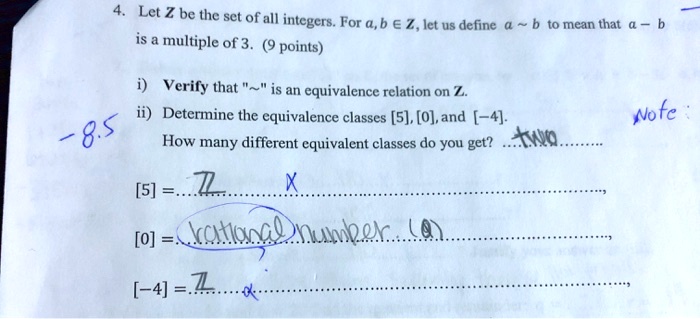 4. Let Z be the set of all integers. For a, b ∈ Z, let us define a ~ b to mean that a − b
is a multiple of 3. (9 points)
i) Verify that "~" is an equivalence relation on Z.
ii) Determine the equivalence classes [5], [0], and [−4].
Note :
-8.5
How many different equivalent classes do you get? ...two.........
[5] =....ℤ............X..............................,
[0] =...rational number. (Q)..............................,
[−4] =.ℤ......x..............................,